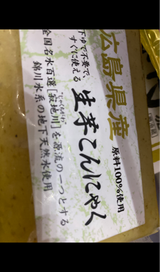 広島県産
原料100%使用
下ゆで不要で、
すぐに使える
生芋こんにゃく
全国名水百選「寂地川」を源流の一つとする
錦川水系の地下天然水使用